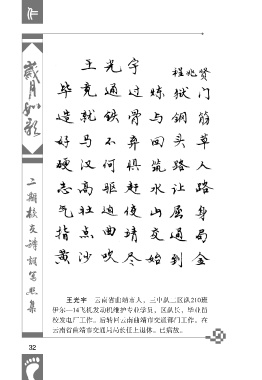 歲月如歌
二期校友诗词写照集
王光宇
程兆贤
毕竟通过炼狱门
造就铁骨与钢筋
好马不弃回头草
硬汉何惧筑路人
志高驱赶水让路
气壮迫使山屈身
指点曲靖交通局
黄沙吹尽始到金
王光宇 云南省曲靖市人，三中队二区队210班
伊尔—14飞机发动机维护专业学员、区队长，毕业留
校发电厂工作。后转回云南曲靖市交通部门工作，在
云南省曲靖市交通局局长任上退休。已病故。
32